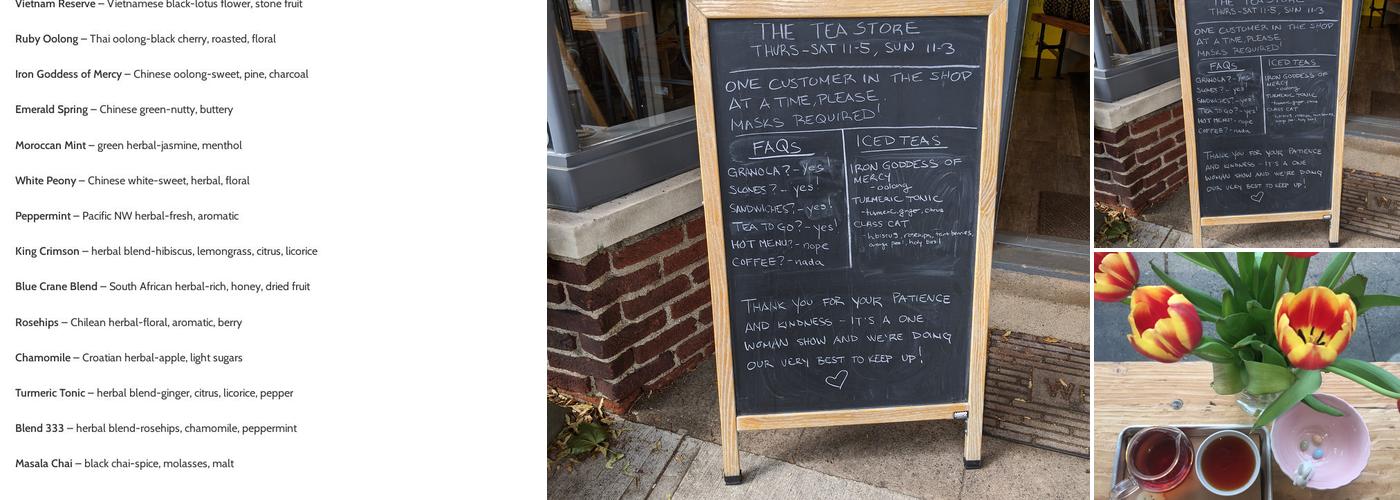 Vietnam Reserve – Vietnamese black-lotus flower, stone fruit
Ruby Oolong – Thai oolong-black cherry, roasted, floral
Iron Goddess of Mercy – Chinese oolong-sweet, pine, charcoal
Emerald Spring – Chinese green-nutty, buttery
Moroccan Mint – green herbal-jasmine, menthol
White Peony – Chinese white-sweet, herbal, floral
Peppermint – Pacific NW herbal-fresh, aromatic
King Crimson – herbal blend-hibiscus, lemongrass, citrus, licorice
Blue Crane Blend – South African herbal-rich, honey, dried fruit
Rosehips – Chilean herbal-floral, aromatic, berry
Chamomile – Croatian herbal-apple, light sugars
Turmeric Tonic – herbal blend-ginger, citrus, licorice, pepper
Blend 333 – herbal blend-rosehips, chamomile, peppermint
Masala Chai – black chai-spice, molasses, malt
THE TEA STORE
THURS-SAT 11-5, SUN 11-3
ONE CUSTOMER IN THE SHOP
AT A TIME, PLEASE.
MASKS REQUIRED!
FAQs
GRANOLA? - yes!
SCONES? - yes!
SANDWICHES? - yes!
TEA TO GO? - yes!
HOT MENU? - nope
COFFEE? - nada
ICED TEAS
IRON GODDESS OF
MERCY
- oolong
TURMERIC TONIC
- turmeric, ginger, citrus
CLASS CAT
- hibiscus, rosehips, tart berries,
orange peel, holy basil
THANK YOU FOR YOUR PATIENCE
AND KINDNESS - IT'S A ONE
WOMAN SHOW AND WE'RE DOING
OUR VERY BEST TO KEEP UP!
THE TEA STORE
THURS-SAT 11-5, SUN 11-3
ONE CUSTOMER IN THE SHOP
AT A TIME, PLEASE.
MASKS REQUIRED!
FAQs
GRANOLA? - yes!
SCONES? - yes!
SANDWICHES? - yes!
TEA TO GO? - yes!
HOT MENU? - nope
COFFEE? - nada
ICED TEAS
IRON GODDESS OF
MERCY
- oolong
TURMERIC TONIC
- turmeric, ginger, citrus
CLASS CAT
THANK YOU FOR YOUR PATIENCE
AND KINDNESS - IT'S A ONE
WOMAN SHOW AND WE'RE DOING
OUR VERY BEST TO KEEP UP!